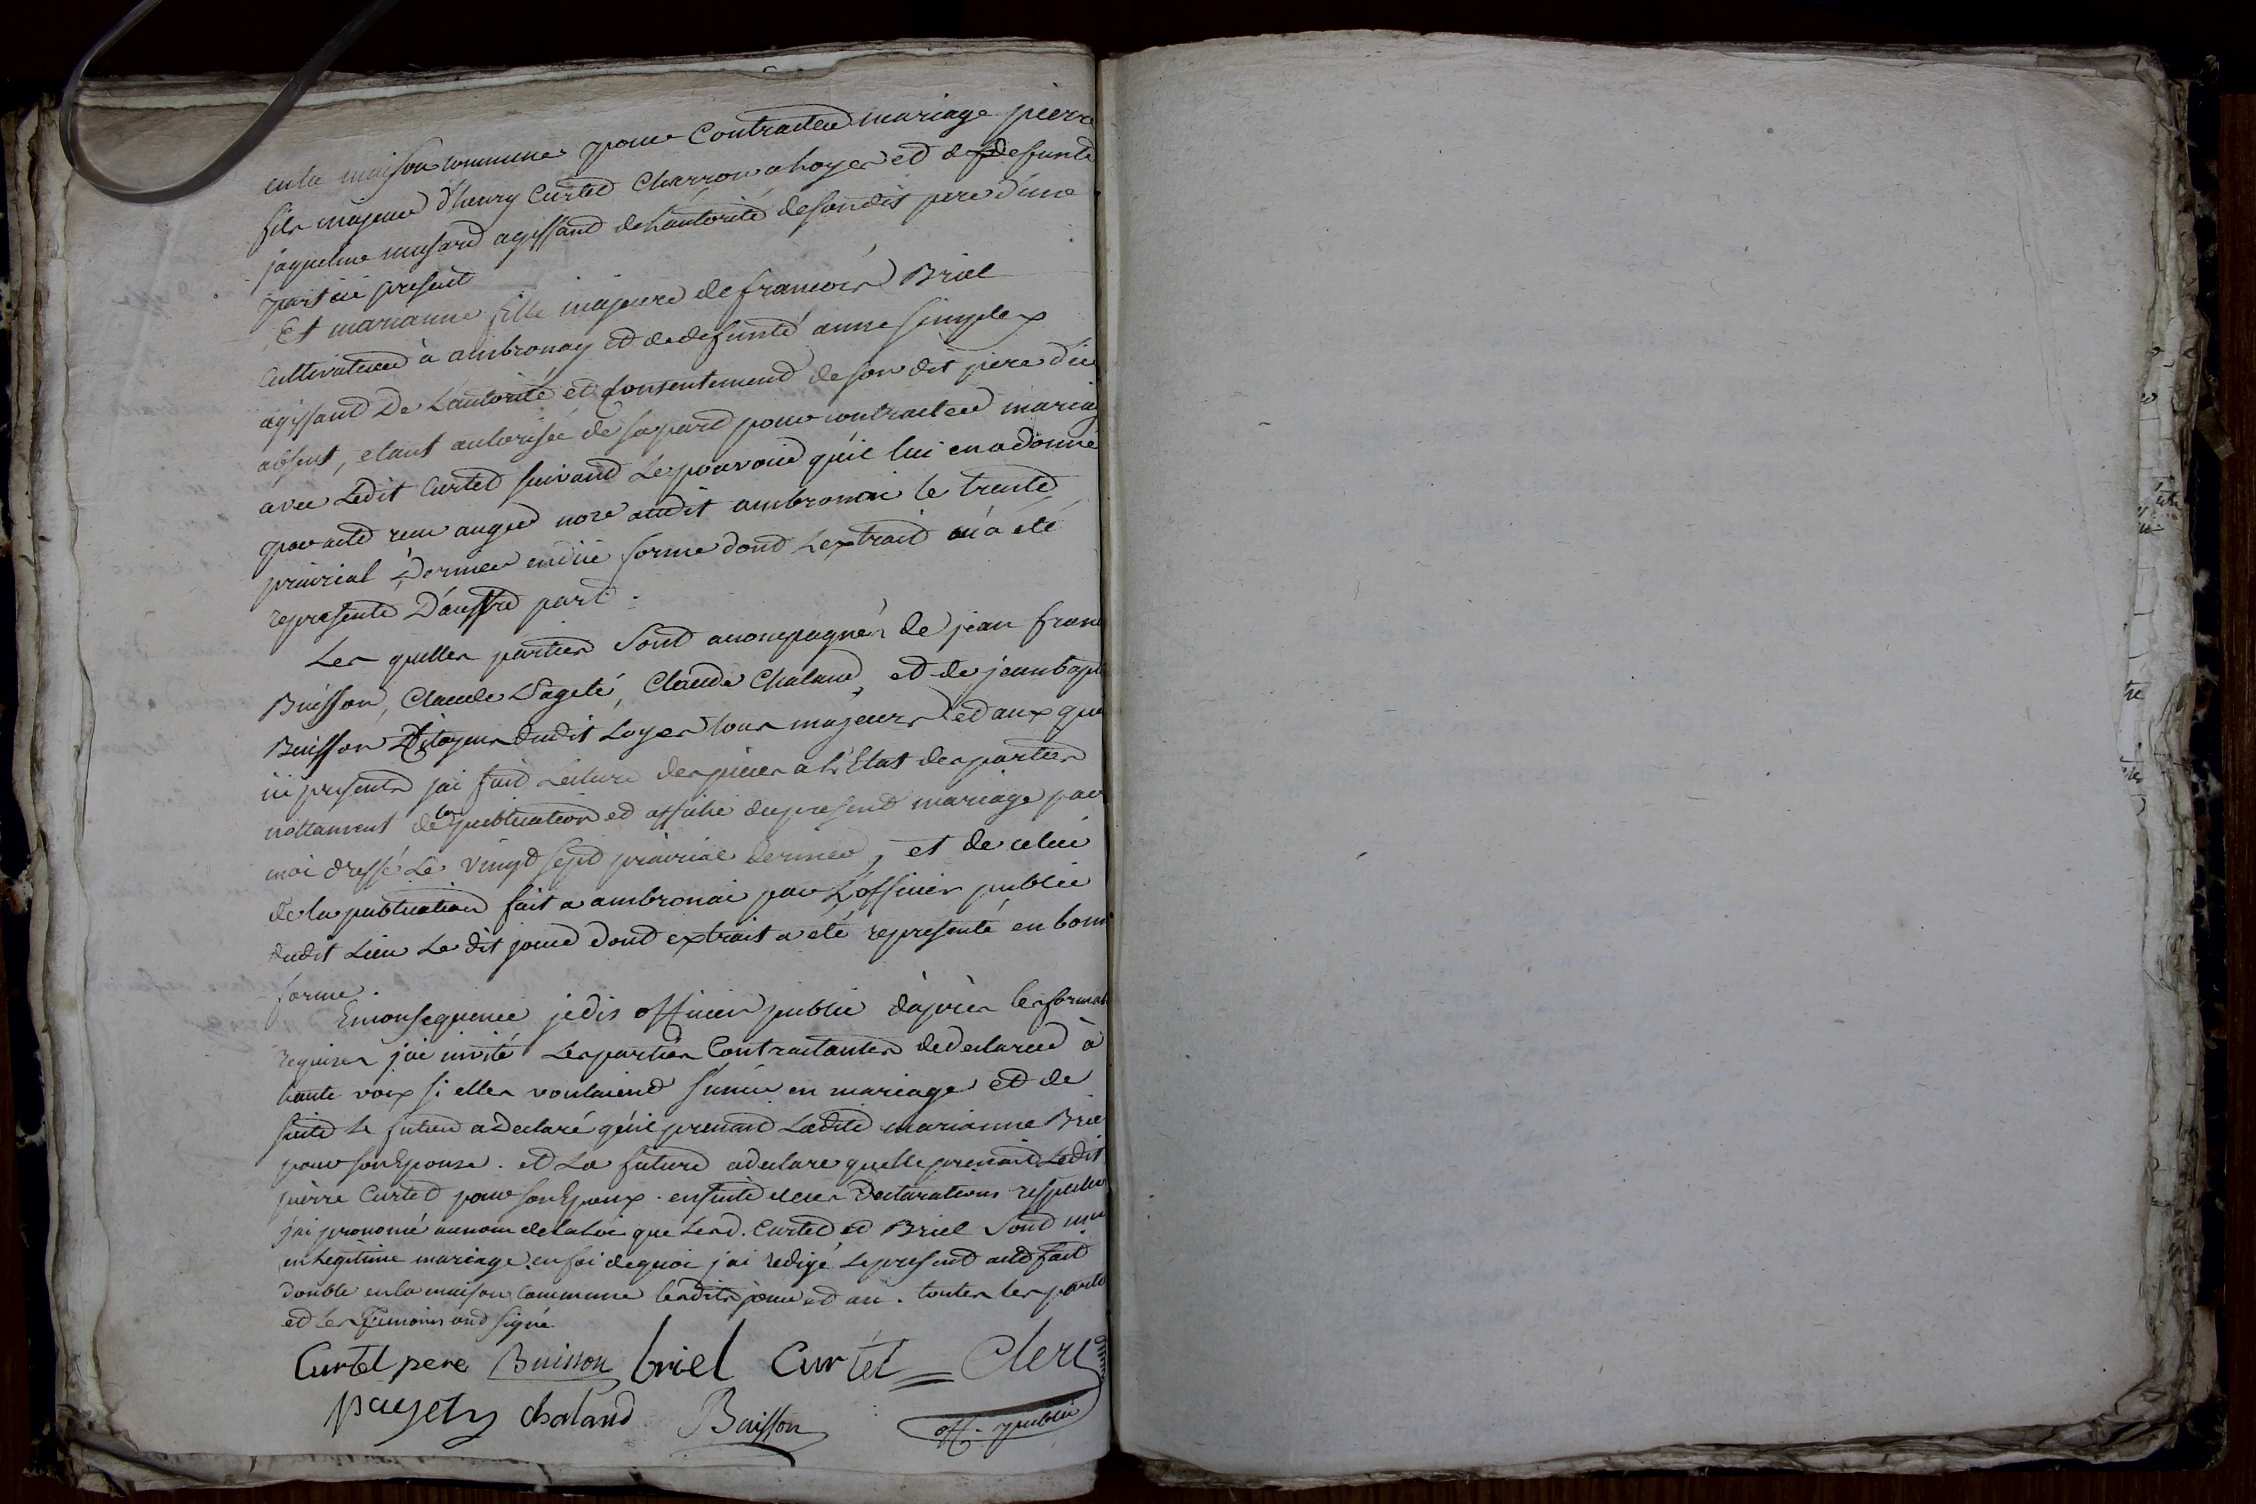 en la maison commune pour Contracter mariage pierre
fils majeur d'henry Curtet Charron a loyes et de defunte
jaqueline musard agissant de Lautorité de son dit pere d'une
part ici present
Et marianne fille majeure de francois Briel
Cultivateur à ambronay et de defunte anne simplex
agissant De Lautorité et Consentement de son dit pere d'ici
absent, etant autorisée de sa part pour contracter mariag
avec Ledit Curtet suivant Le pouvoir qu'il lui en a donné
par acte recu auger nore audit ambronai le trente
prairial Dernier en due forme dont Lextrait m'a été
representé D'autre part.
Les quelles parties sont acompagnés de jean franc
Buisson, Claude Pageté, Claude Chaland, et de jean bapt
Buisson Citoyens dudit Loyes tous majeurs et aux que
ici presents jai fait Lecture des pieces a L'Etat des parties
nottament de la publication et affiche du present mariage par
moi dressé Le vingt sept prairial dernier, et de celui
de la publication fait a ambronai par L'officier public
dudit Lieu Le dit jour dont extrait a eté representé en bonn
forme.
En consequence je dis officier public d'après les formal
requises jai invité Les parties Contractantes de declarer à
haute voix si elles vouloient s'unir en mariage et de
suite Le futur a Declaré qu'il prenoit Ladite marianne Brie
pour son Epouse. et La future a declare quelle prenoit Ledit
pierre Curtet pour son Epoux. ensuite de ces Declarations respectiv
j'ai prononcé au nom de la Loi que Lesd. Curtet et Briel sont unis
en Legitime mariage. en foi de quoi j'ai redigé Le present acte fait
double en la maison Commune lesdits jour et an. toutes les partie
et Les Temoins ont signé
Curtet pere Buisson briel Curtet Clerc
pagety chaland Buisson off. public